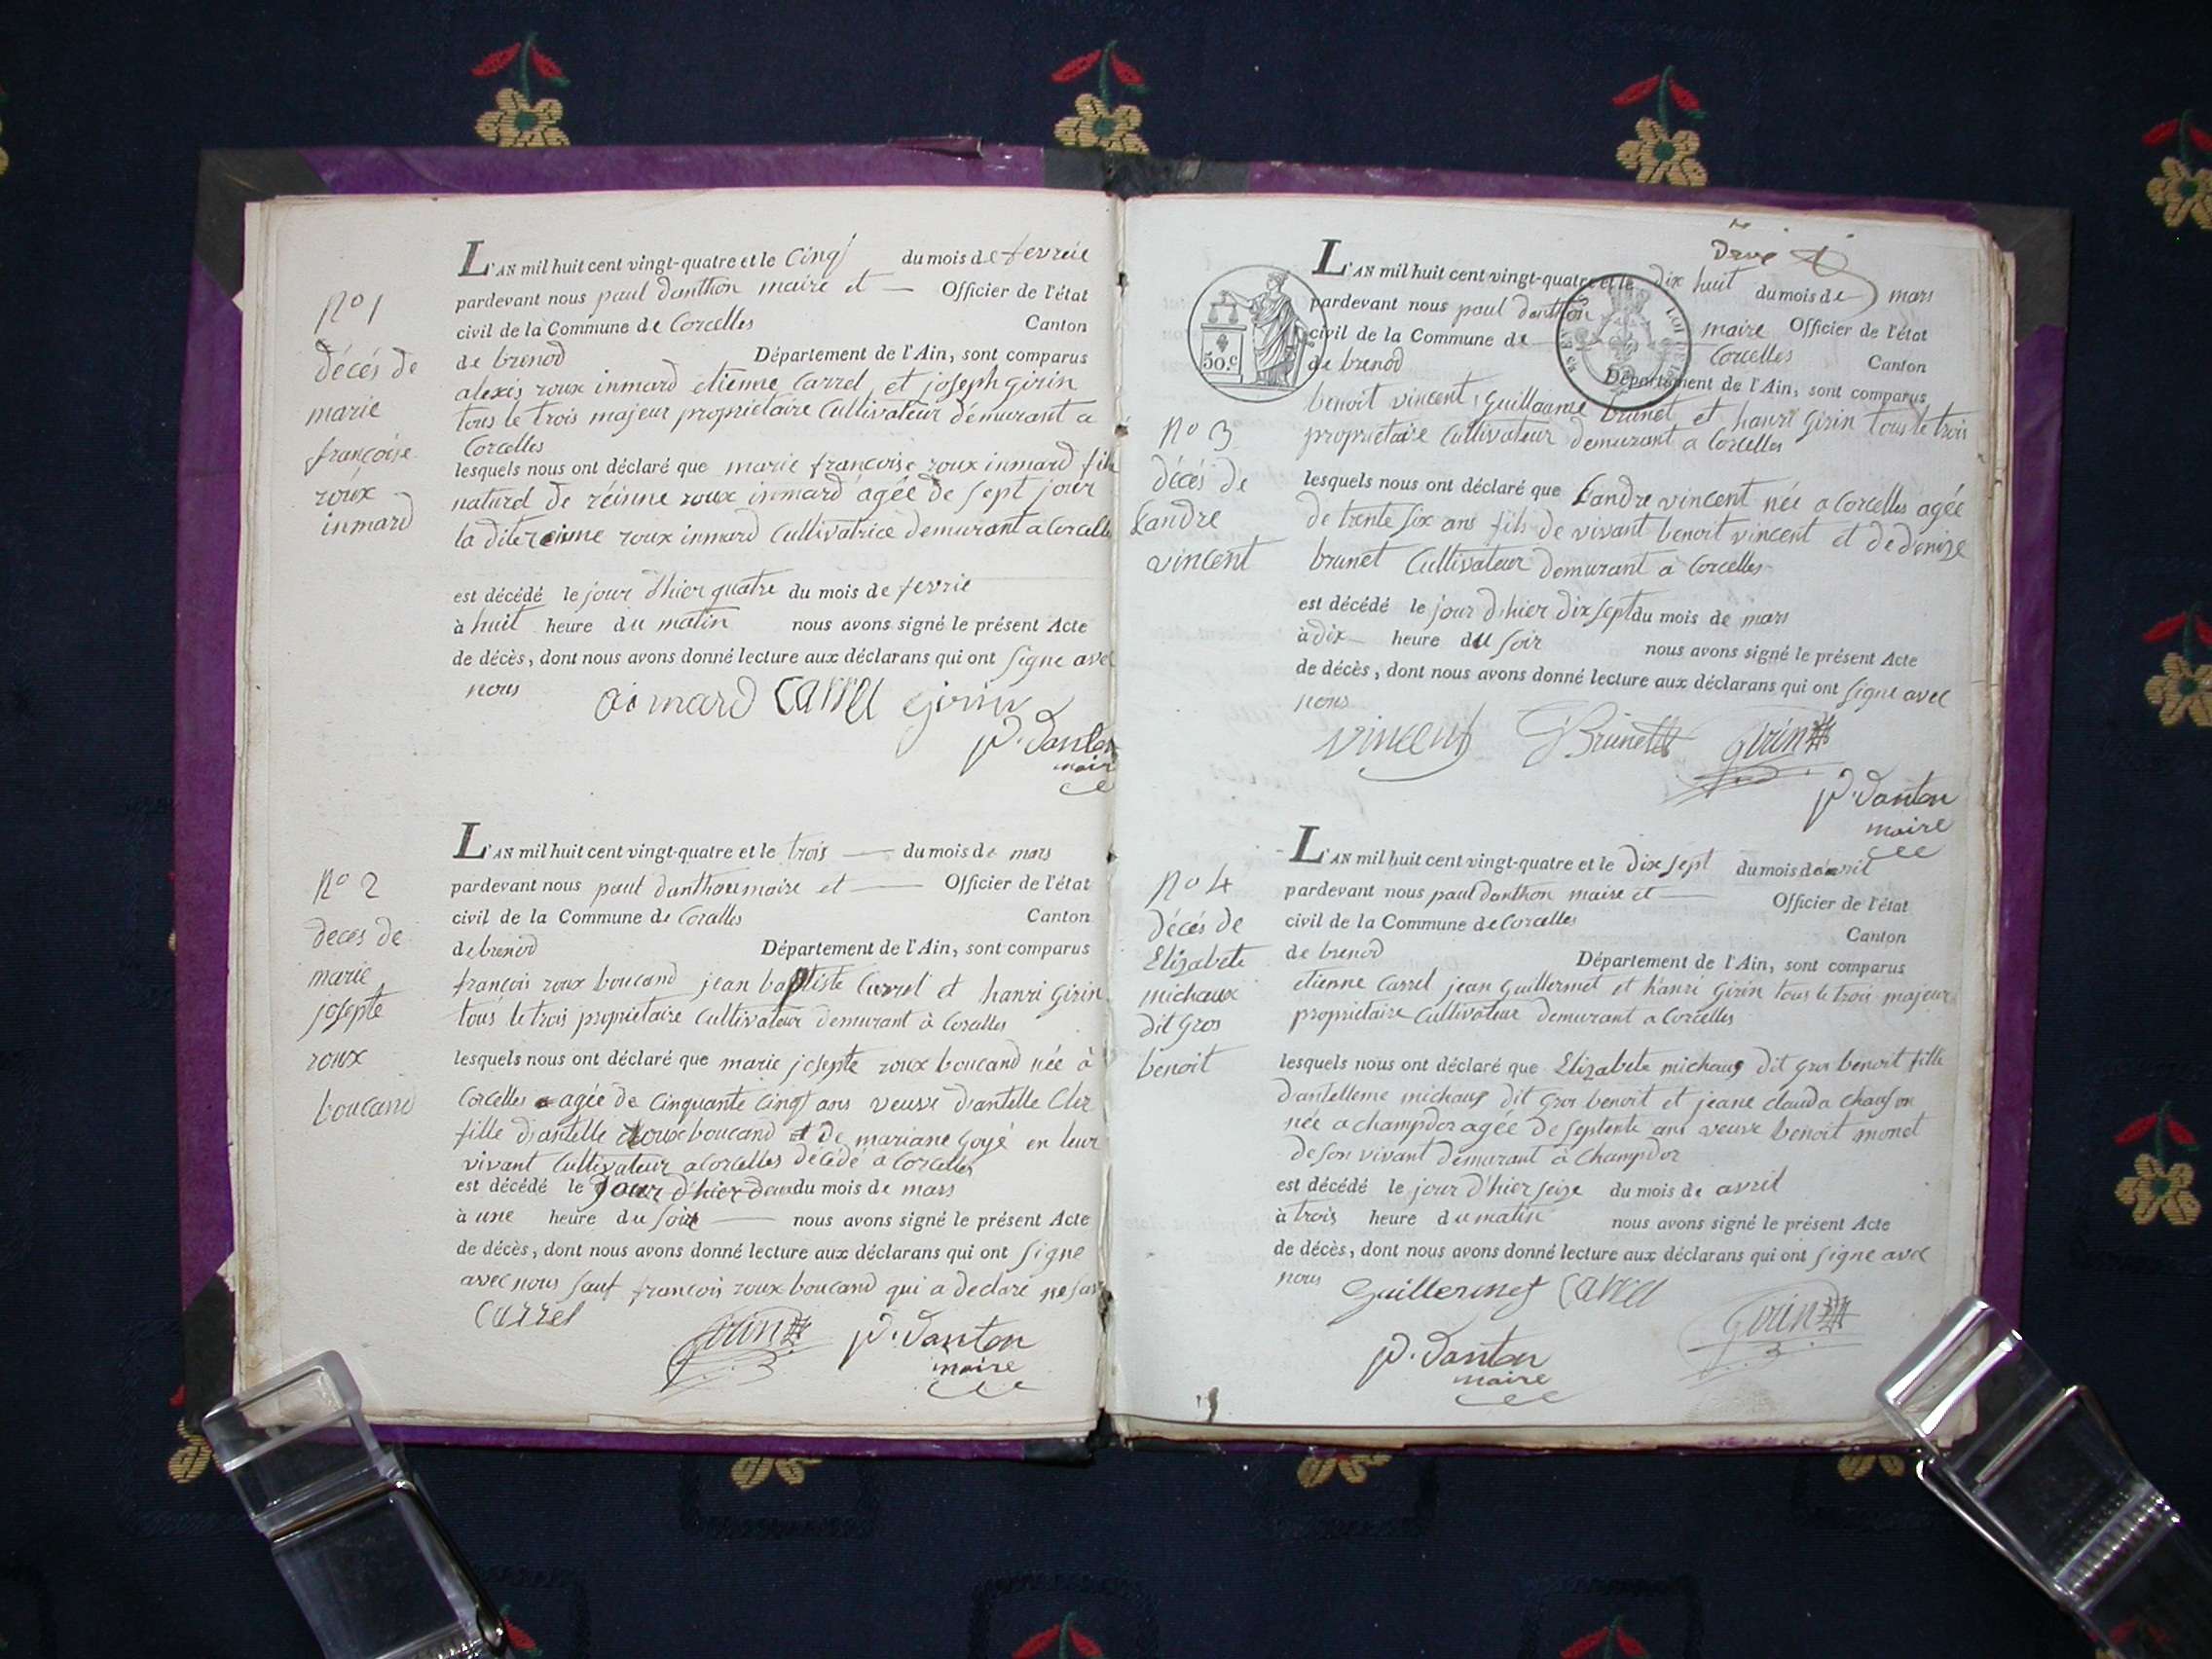 N° 1
décés de
marie
françoise
roux
inmard
L'AN mil huit cent vingt-quatre et le cinq du mois de fevrie
pardevant nous paul danthon maire et — Officier de l'état
civil de la Commune de Corcelles Canton
de brenod Département de l'Ain, sont comparus
alexis roux inmard etienne Carrel et joseph girin
tous le trois majeur propriétaire Cultivateur demurant a
Corcelles
lesquels nous ont déclaré que marie françoise roux inmard fille
naturel de réinne roux inmard agée de sept jour
la dite reinne roux inmard Cultivatrice demurant a Corcelles
est décédé le jour d'hier quatre du mois de fevrie
à huit heure du matin nous avons signé le présent Acte
de décès, dont nous avons donné lecture aux déclarans qui ont signe avec
nous
aimard Carrel girin
p. Danton
maire
N° 2
deces de
marie
josepte
roux
boucand
L'AN mil huit cent vingt-quatre et le trois — du mois de mars
pardevant nous paul danthon maire et — Officier de l'état
civil de la Commune de Corcelles Canton
de brenod Département de l'Ain, sont comparus
françois roux boucand jean baptiste Carrel et hanri Girin
tous le trois propriétaire Cultivateur demurant à Corcelles
lesquels nous ont déclaré que marie josepte roux boucand née à
Corcelles agée de Cinquante Cinq ans veuve d'antelle Cler
fille d'antelle roux boucand et de mariane Goyé en leur
vivant Cultivateur a Corcelles décédé a Corcelles
est décédé le Jour d'hier deux du mois de mars
à une heure du soir — nous avons signé le présent Acte
de décès, dont nous avons donné lecture aux déclarans qui ont signe
avec nous sauf françois roux boucand qui a declaré ne
Carrel Girin p. Danton
maire
50.c
L'AN mil huit cent vingt-quatre et le dix huit du mois de mars
pardevant nous paul danthon maire Officier de l'état
civil de la Commune de Corcelles Canton
de brenod Département de l'Ain, sont comparus
benoit vincent, Guillaume brunet et hanri Girin tous le trois
propriétaire Cultivateur demurant a Corcelles
N° 3
décés de
Landre
vincent
lesquels nous ont déclaré que Landre vincent née a Corcelles agée
de trente six ans fils de vivant benoit vincent et de denize
brunet Cultivateur demurant a Corcelles
est décédé le jour d'hier dix sept du mois de mars
à dix heure du soir nous avons signé le présent Acte
de décès, dont nous avons donné lecture aux déclarans qui ont signe avec
nous
vincent G Brunet Girin
p. Danton
maire
N° 4
décés de
Elizabete
michaux
dit Gros
benoit
L'AN mil huit cent vingt-quatre et le dix sept du mois de avril
pardevant nous paul danthon maire et — Officier de l'état
civil de la Commune de Corcelles
Canton
de brenod Département de l'Ain, sont comparus
etienne Carrel jean Guillermet et hanri Girin tous le trois majeur
propriétaire Cultivateur demurant a Corcelles
lesquels nous ont déclaré que Elizabete michaux dit gros benoit fille
d'antelleme michaux dit Gros benoit et jeane clauda
née a champdor agée de septente ans veuve benoit monet
de son vivant demurant à Champdor
est décédé le jour d'hier seize du mois de avril
à trois heure du matin nous avons signé le présent Acte
de décès, dont nous avons donné lecture aux déclarans qui ont signe avec
nous Guillermet Carrel
Girin
p. Danton
maire